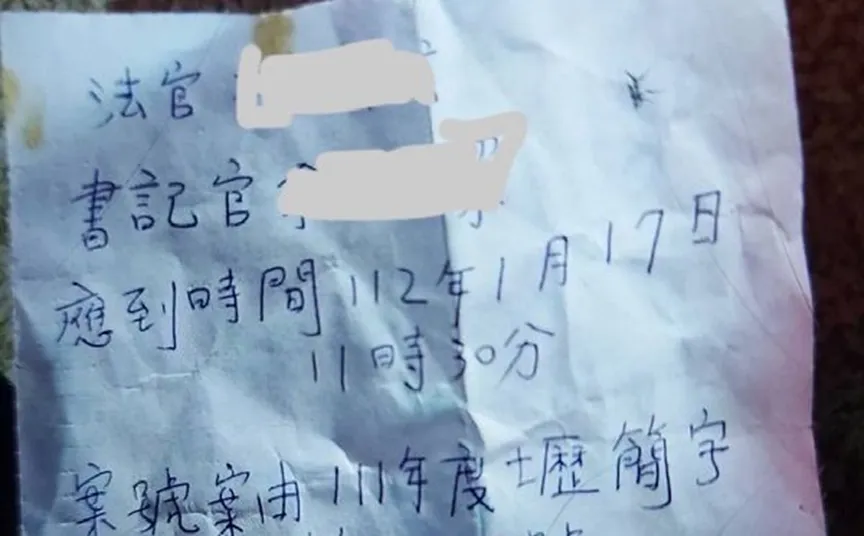 法官
書記官
應到時間112年1月17日
11時30分
案號案由111年度壢簡字
號